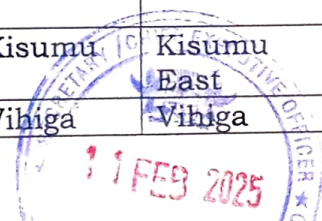 Kisumu Kisumu
East
Vihiga Vihiga
SECRETARY / EXECUTIVE OFFICER ★
11 FEB 2025